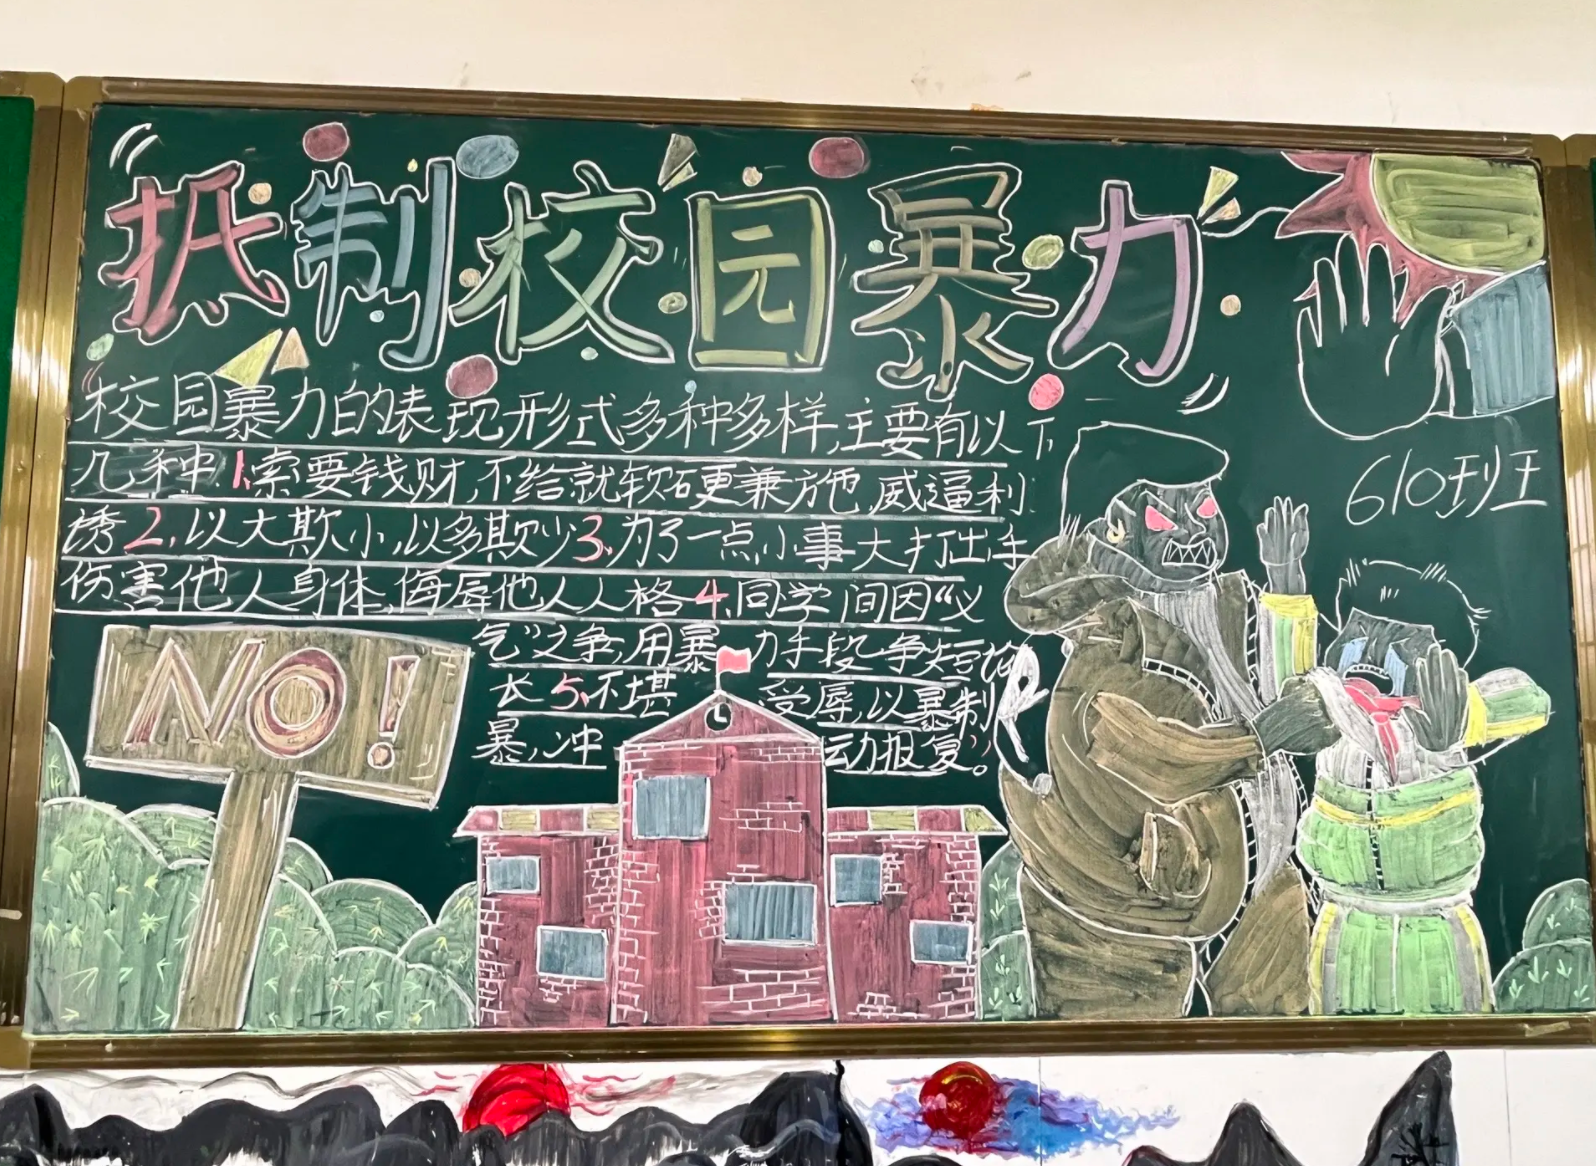 抵制校园暴力
校园暴力的表现形式多种多样,主要有以下
几种 1.索要钱财,不给就软硬兼施,威逼利
诱 2.以大欺小,以多欺少 3.为了一点小事大打出手
伤害他人身体,侮辱他人人格 4.同学间因“义
气”之争,用暴力手段争短论
长 5.不堪受辱,以暴制
暴,冲动报复”。
610班
NO!